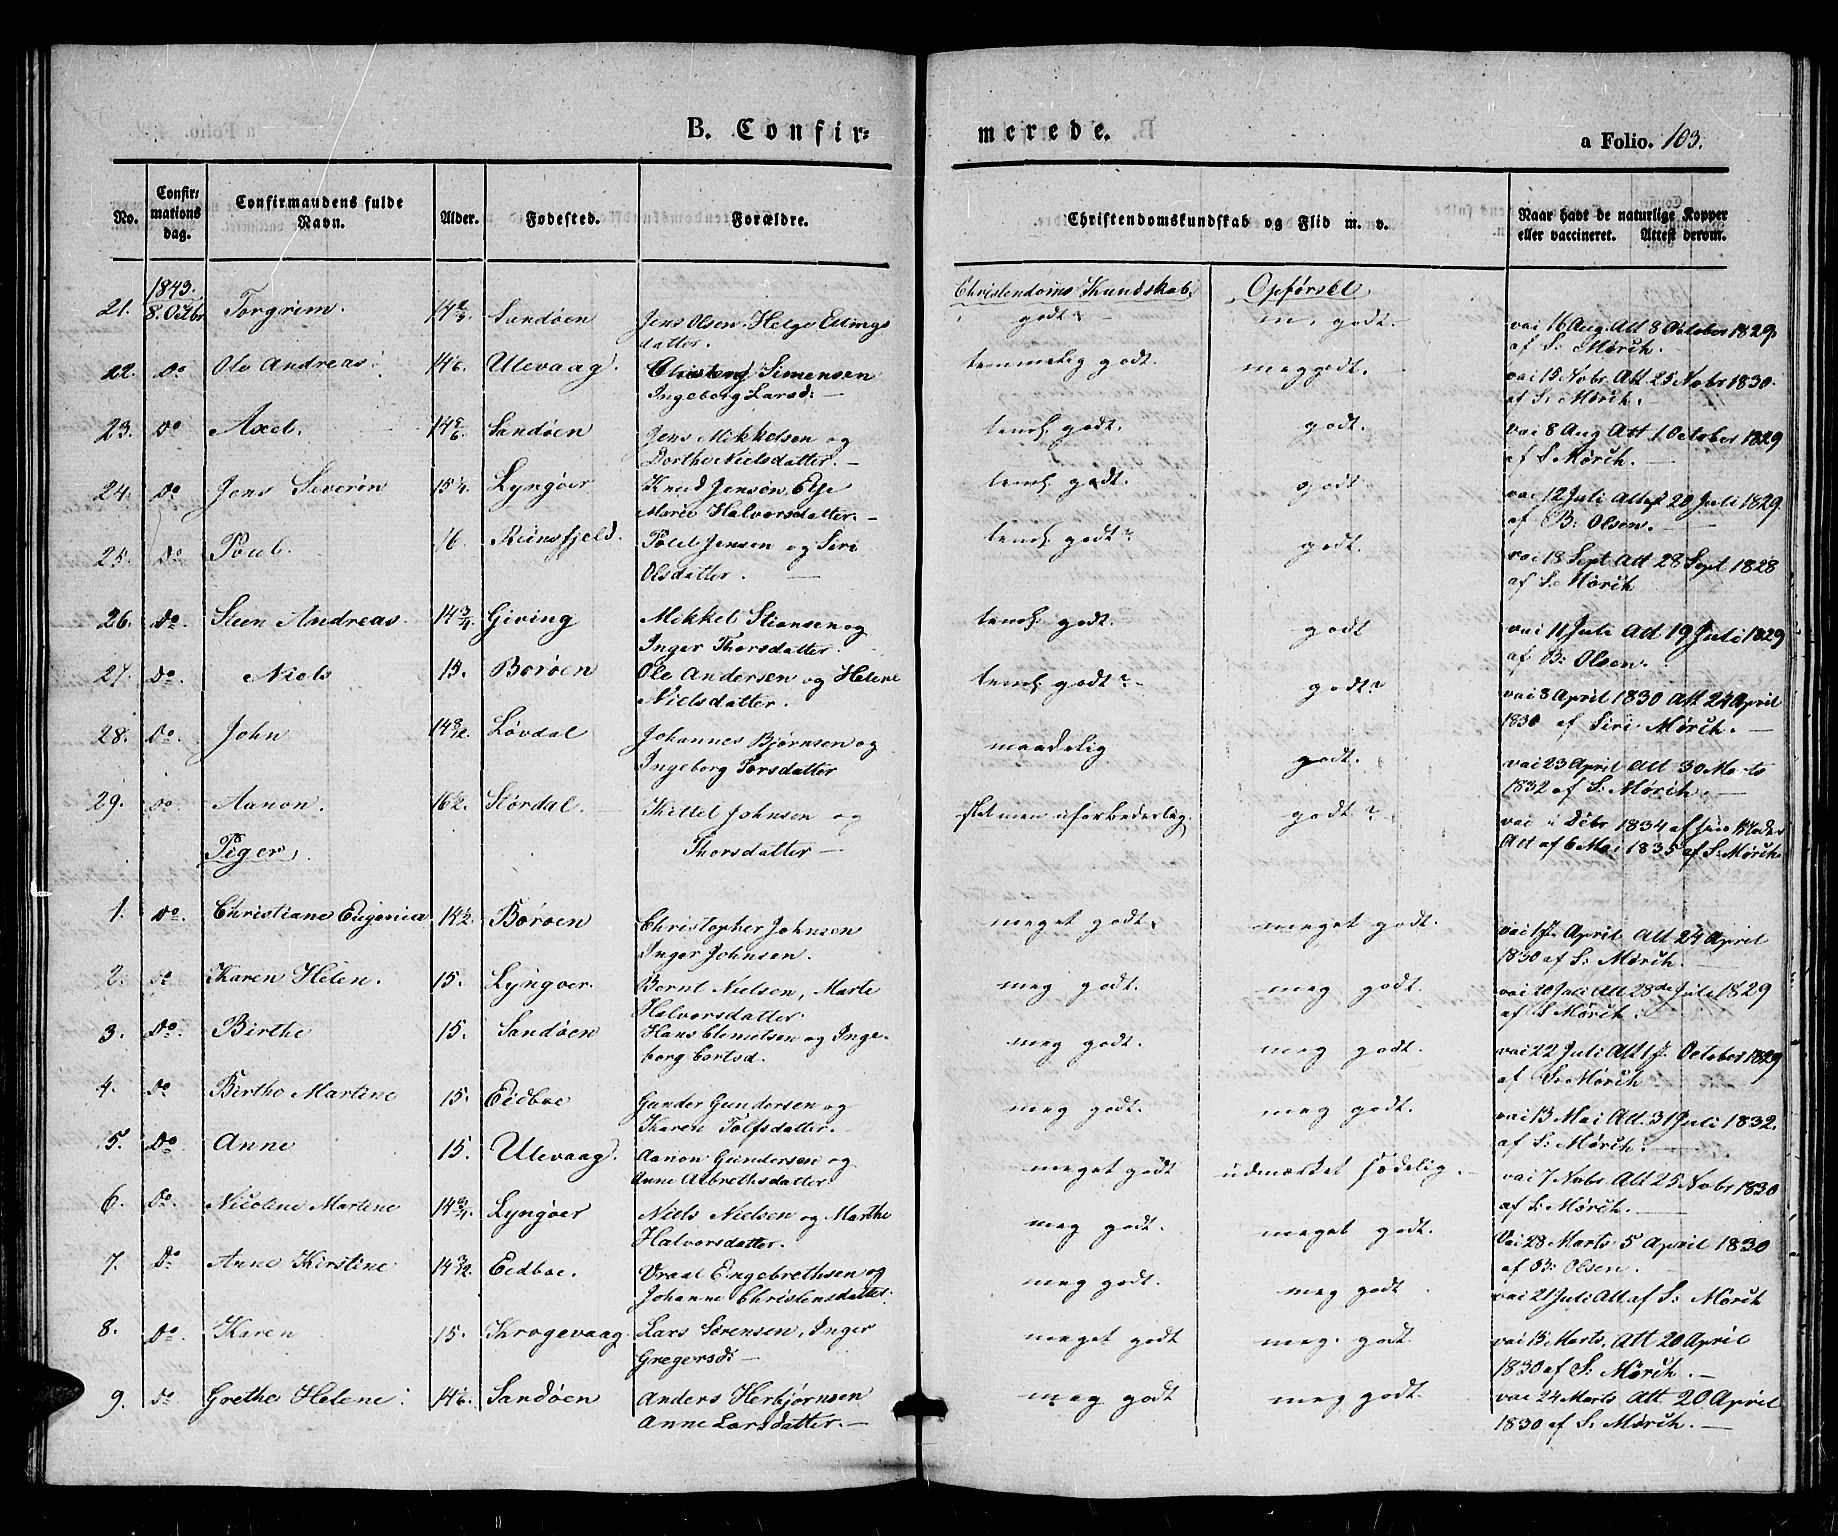 B. Confir=
merede.
a Folio. 103.
No.
Confir=
mations
dag.
Confirmandens fulde
Navn.
Alder.
Fødested.
Forældre.
Christendomskundskab og Flid m. v.
Naar havt de naturlige Kopper
eller vaccineret. Attest derom.
1843.
Christendoms Kundskab.
Opførsel
21. 8. Octbr Torgrim. Sandøen Jens Olsen. Helge Ellings
datter. godt m. godt. vac 16 Aug. Att 8 October 1829.
af S: Mørch.
22. Do Ole Andreas 14 1/6. Ulevaag. Simensen
Ingeborg Larsd: temmelig godt meg godt. vac 15 Nobr. Att 25 Nobr 1830.
af S: Mørch.
23. Do Axel. Sandøen Jens Mikkelsen og
Dorthe Nielsdatter. teml. godt. godt. vac 8 Aug Att 1 October 1829
af S Mørch.
24. Do Jens Severin 15 1/4. Lyngøer Knud Jensen, Else
Marie Halvorsdatter. teml. godt. godt vac 12 Juli Attest 20 Juli 1829.
af B: Olsen.
25. Do Poul. 16. Poul Jensen og Siri
Olsdatter. teml. godt? godt. vac 18 Sept Att 28 Sept 1828
af S: Mørch
26. Do. Steen Andreas. 14 3/4 Giving Mikkel Stiansen og
Inger Thorsdatter. teml. godt. godt vac 11 Juli Att 19 Juli 1829
af B: Olsen.
27. Do. Niels 15. Borøen Ole Andersen og Helene
Nielsdatter. teml. godt? godt? vac 8 April 1830 Att 24 April
1830 af Siri Mørch.
28. Do. John 14 8/12. Løvdal Johannes Bjørnsen og
Ingeborg Torsdatter maadelig godt. vac 23 April Att 30 Marts
1832 af S: Mørch.
29. Do Aanon. 16 1/2. Størdal. Kittel Johnsen og
Thorsdatter slet men uforbederlig. godt? vac i Decbr 1834 af Moder
Att af 6 Mai 1835 af S: Mørch
Piger.
1. Do. Christiane Eugenia 14 1/2. Borøen Christopher Johnsen
Inger Johnsen. meget godt. meget godt. April Att 24 April
1830 af S: Mørch.
2. Do Karen Helen. 15. Lyngøer. Bernt Nielsen, Marte
Halvorsdatter meg godt. meg godt. vac 20 Juli Att 28de Juli 1829
af S Mørch.
3. Do. Birthe 15. Sandøen Hans Clemetsen og Inge-
borg meg godt. meg godt. vac 22 Juli Att October 1829
af S: Mørch
4. Do Birthe Martine 15. Eidboe Gunder Gundersen og
Karen Tolfsdatter. meg godt. meg godt. vac 13 Mai Att. 31 Juli 1832.
af S: Mørch.
5. Do. Anne 15. Ulevaag. Aanon Gundersen og
Anne Albrethsdatter meget godt udmærket sædelig. vac 7 Nobr Att 25 Nobr 1830
af S: Mørch.
6. Do. Nicoline Martine 14 3/4. Lyngøer Niels Nielsen og Marthe
Halvorsdatter. meg godt. meget godt. Vac 28 Marts 5 April 1830
af B: Olsen.
7. Do Anne Kirstine 14 3/12. Eidboe. Vraal Engebrethsen og
Johanne Christensdatter. meg godt. meg godt vac 21 Juli Att af S: Mørch
8. Do. Karen 15. Krogevaag. Lars Sørensen, Inger
Gregersd: meget godt meg. godt vac 13 Marts. Att 20 April
1830 af S: Mørch.
9. Do Grethe Helene. 14 1/6. Sandøen Anders Herbjørnsen
Anne Larsdatter. meg godt meg godt. vac 24 Marts Att 20 April
1830 af S: Mørch.